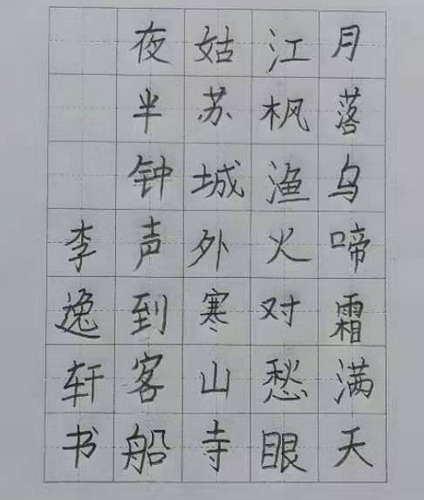 月落乌啼霜满天
江枫渔火对愁眼
姑苏城外寒山寺
夜半钟声到客船
李逸轩书